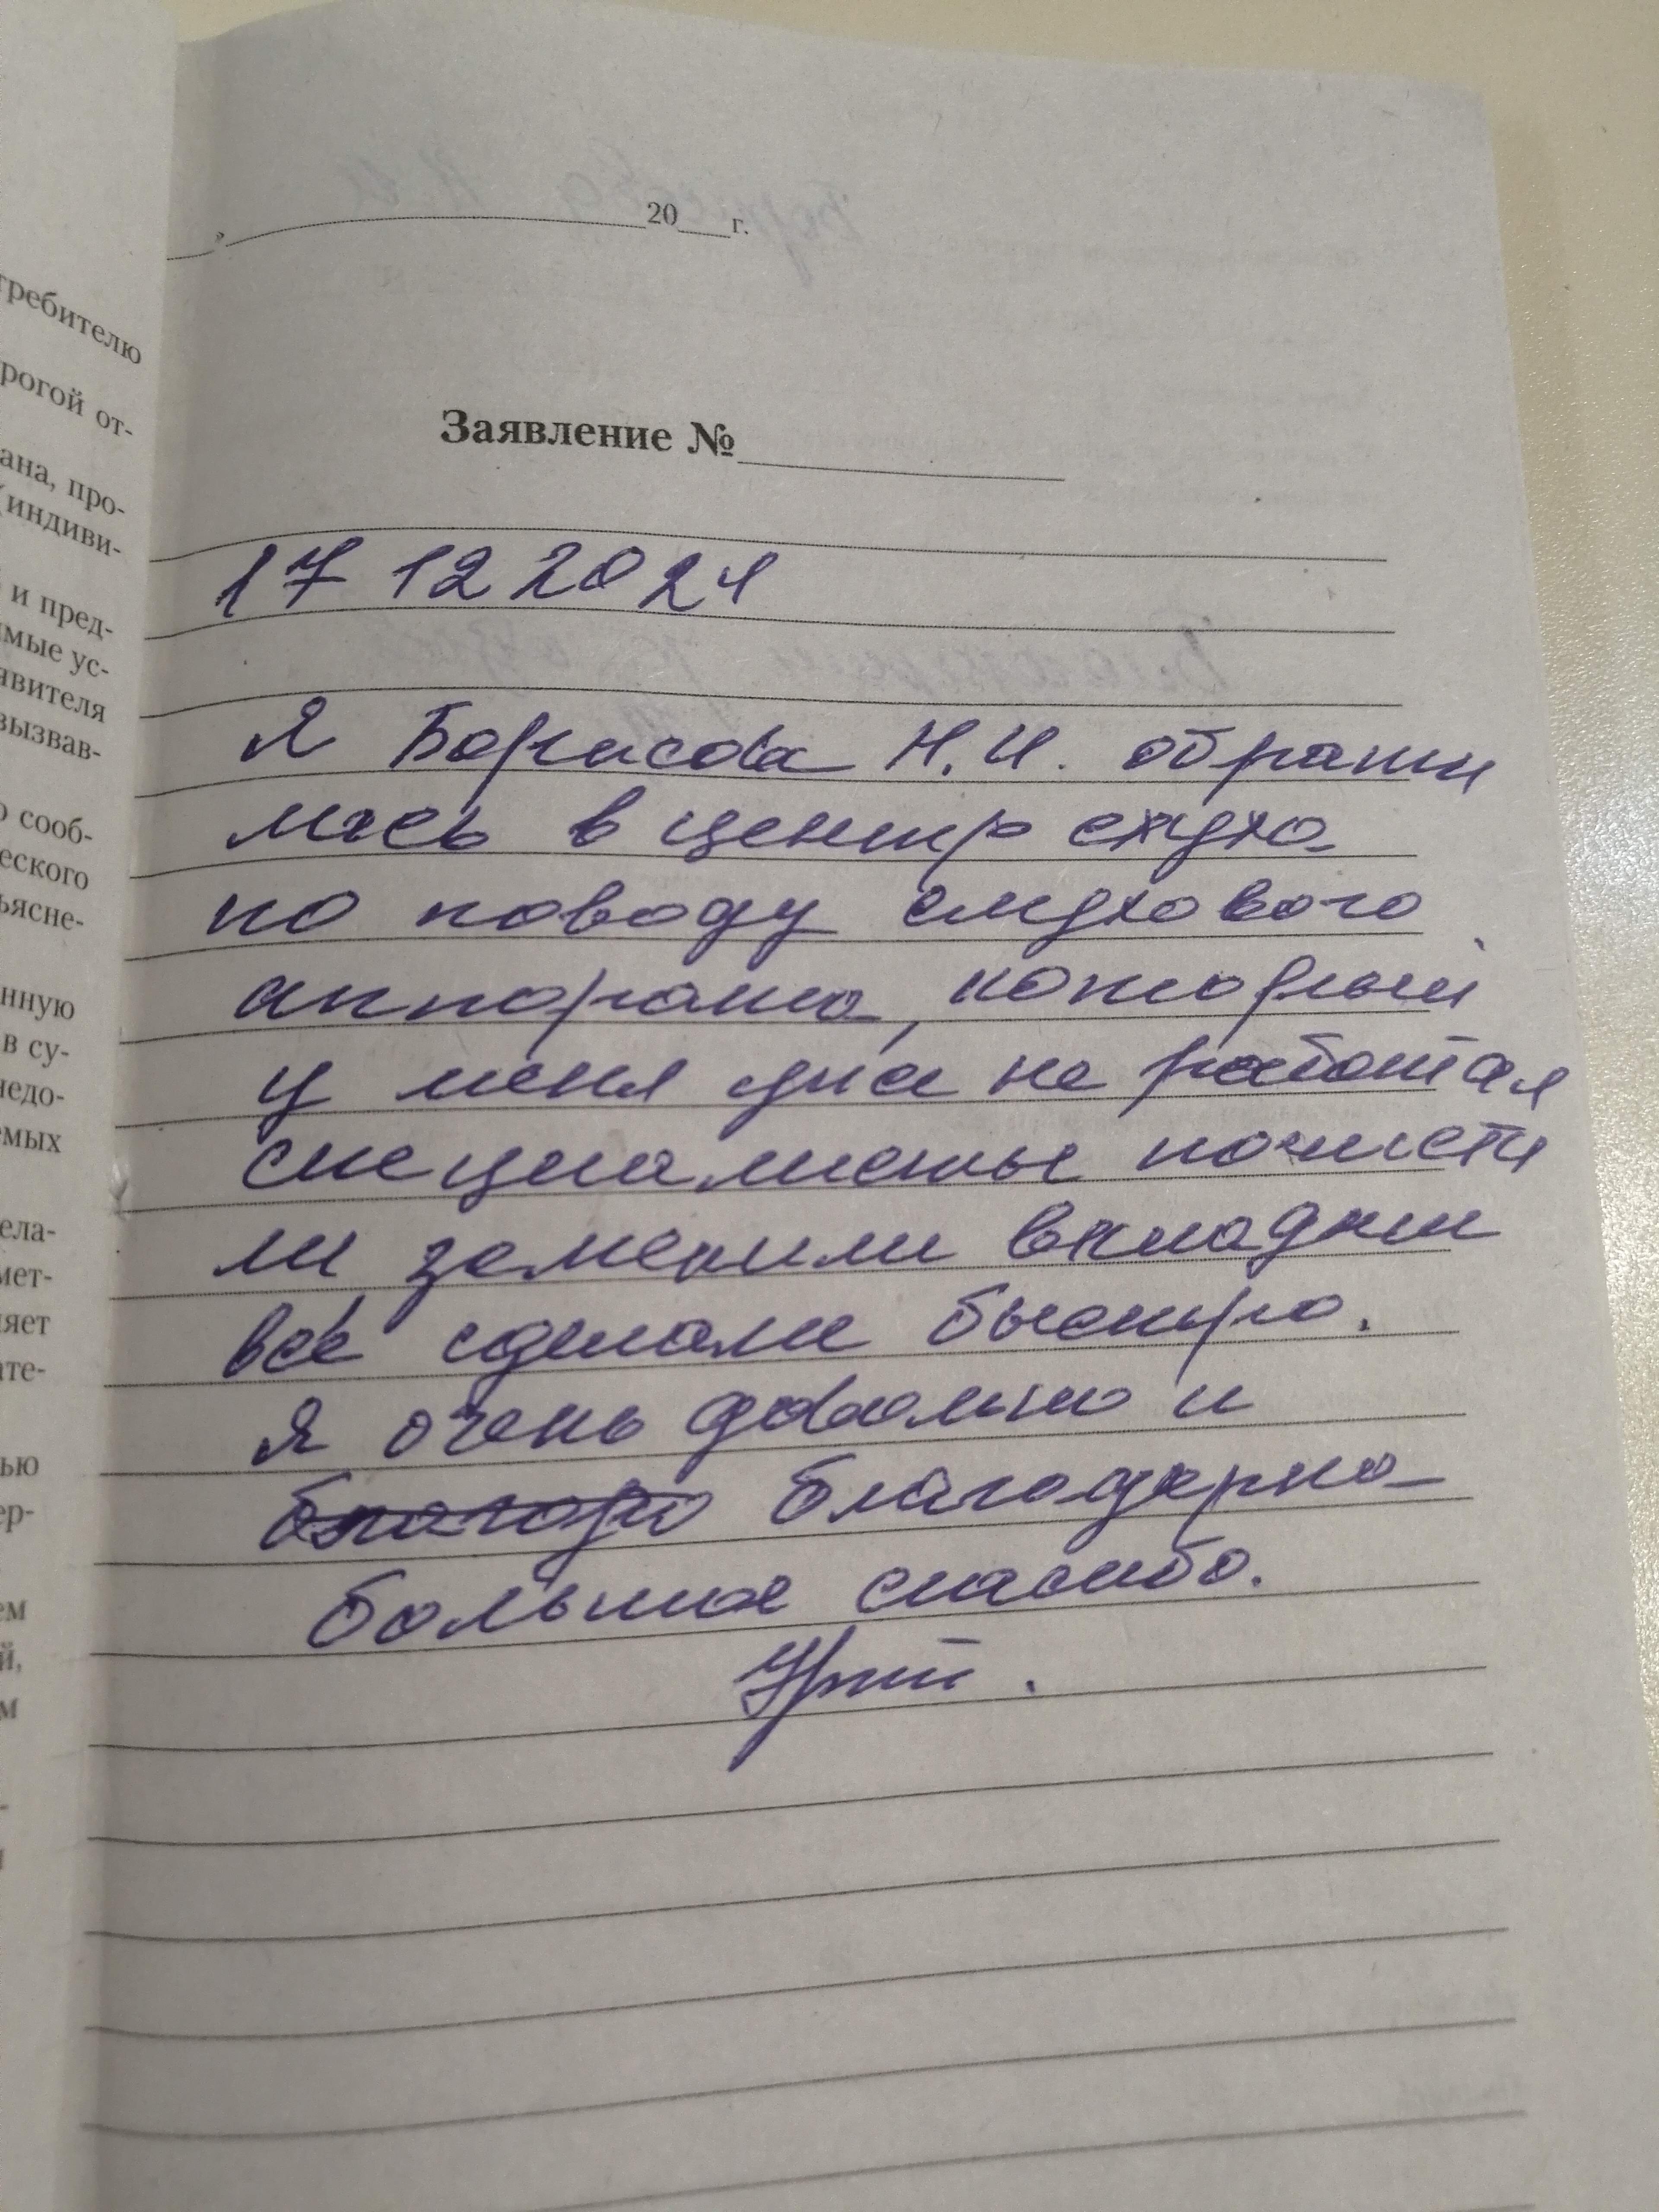 требителю
рогой от-
ана, про-
(индиви-
и пред-
имые ус-
явителя
вызвав-
о сооб-
еского
ъясне-
нную
в су-
недо-
емых
ела-
мет-
ляет
ате-
ью
ер-
ем
й,
м
» 20 г.
Заявление №
17 12 2024
Я Борисова Н.И. обрати
лась в центр слуха
по поводу слухового
аппарата, который
у меня не работал
специалисты почисти
ли заменили вкладки
всё сделали быстро.
Я очень довольно и
благодарно
большое спасибо.